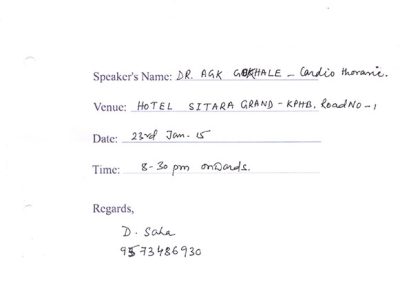 Speaker's Name: DR. AGK GOKHALE - Cardio thoracic.
Venue: HOTEL SITARA GRAND - KPHB. Road NO - 1
Date: 23rd Jan. 15
Time: 8-30 pm onwards.
Regards,
D. Saha
9573486930